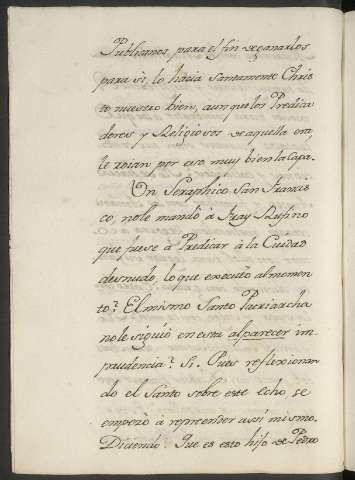 Publicanos para el fin de ganarlos
para si, lo hacia santamente Chris
to nuestro bien, aunque los Predica
dores y Religiosos de aquella era,
le roian por eso muy bien la Capa.
Un Seraphico San Francis
co, no le mandò à Fray Rufino
que fuese à Predicar à la Ciudad
desnudo, lo que executò al momen
to? El mismo Santo Patriarcha
no le siguiò en esta al parecer im
prudencia? Si. Pues reflexionan
do el Santo sobre este echo, se
empezò à reprender assi mismo.
Diciendo: Que es esto hijo de Pedro